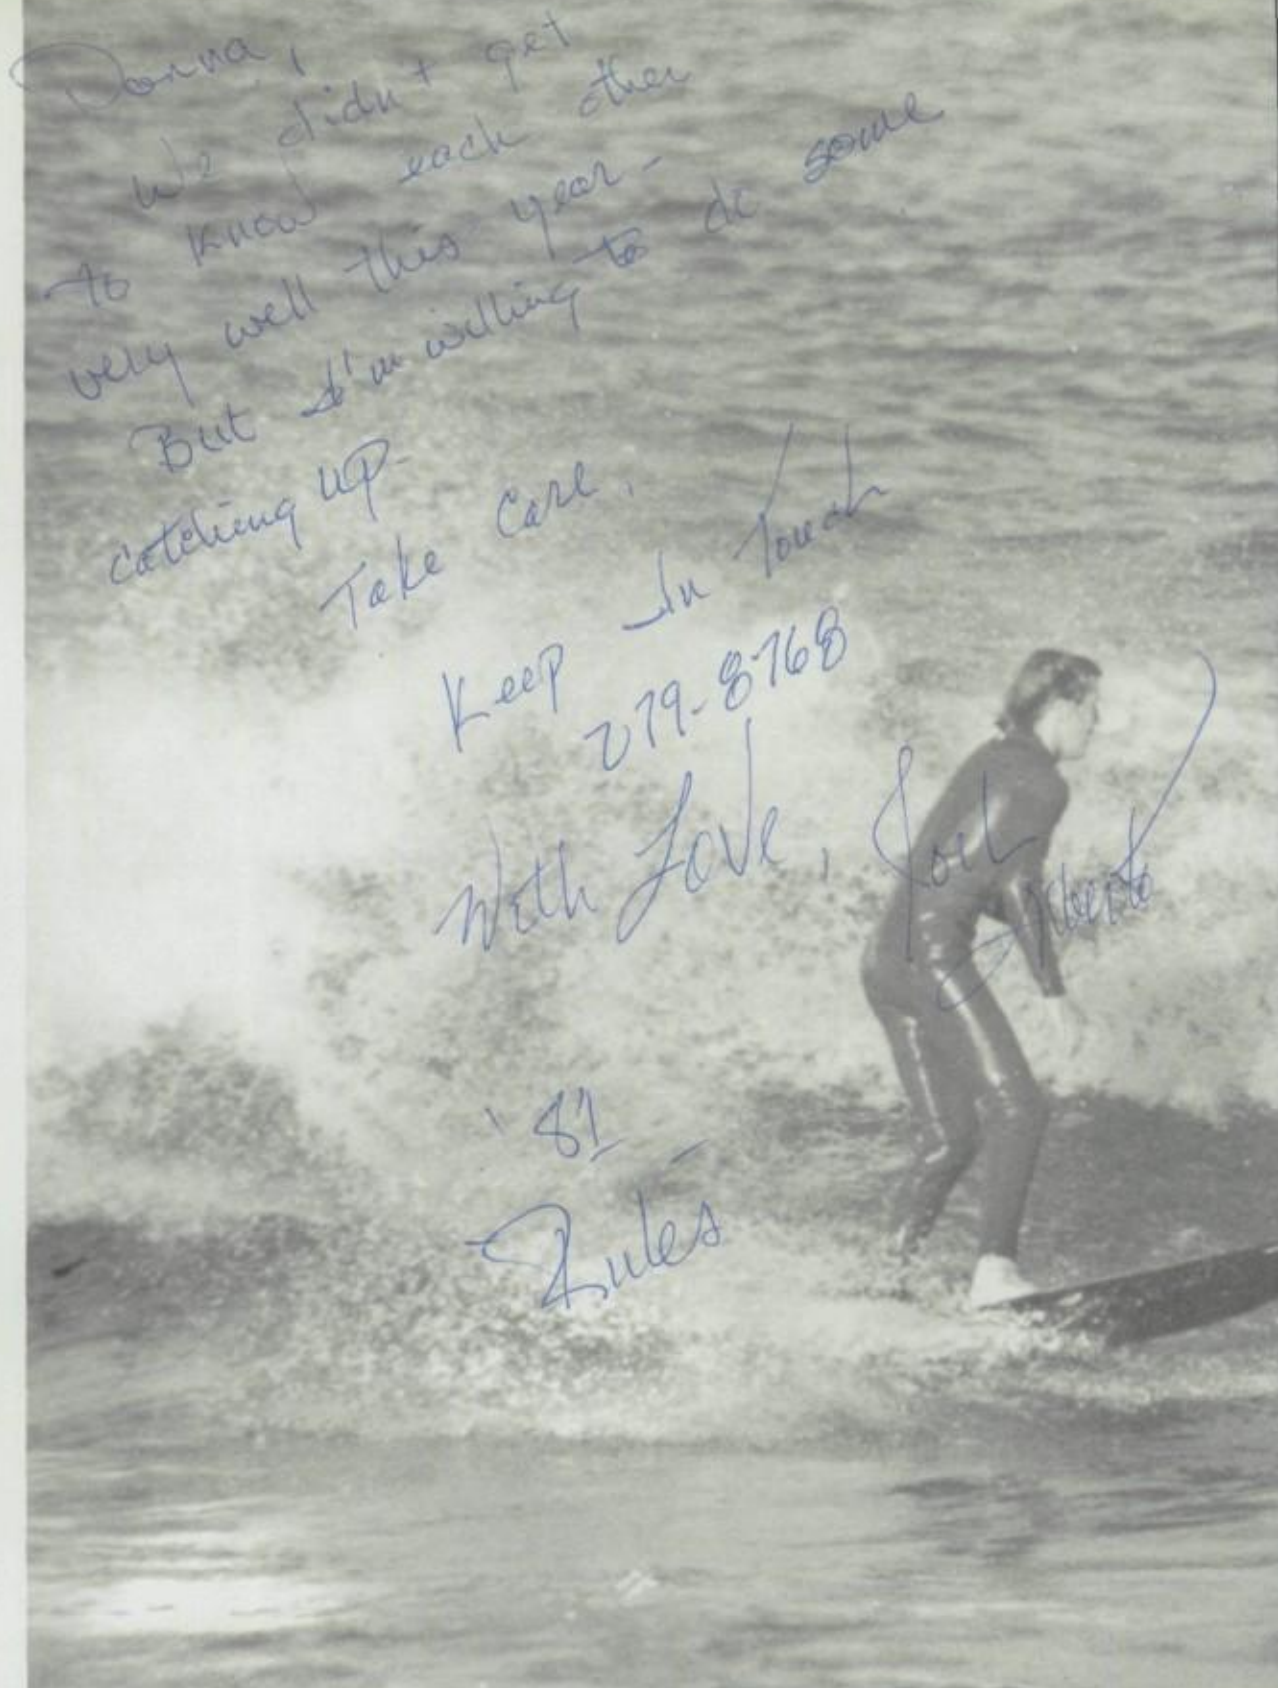 Donna,
We didn't get
to know each other
very well this year-
But I'm willing to do some
catching up-
Take Care,
Keep In Touch
279-8768
With Love,
'81
Rules